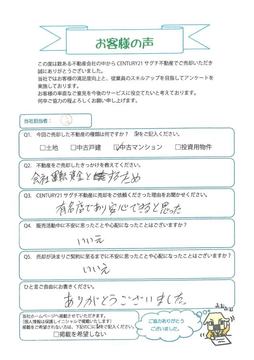 お客様の声
この度は数ある不動産会社の中から CENTURY21 サグチ不動産でご売却いただき
誠にありがとうございました。
当社ではお客様の満足度向上と、従業員のスキルアップを目指してアンケートを
実施しております。
お客様の率直なご意見を今後のサービスに役立てたいと考えております。
何卒ご協力の程よろしくお願い申し上げます。
当社担当者:
Q1. 今回ご売却した不動産の種類は何ですか? をご記入ください。
□土地 □中古戸建 ☑中古マンション □投資用物件
Q2. 不動産をご売却したきっかけを教えてください。
会社運転資金とするため
Q3. CENTURY21 サグチ不動産に売却をご依頼くださった理由をお聞かせください。
有名店であり安心できると思った
Q4. 販売活動中に不安に思ったことや心配になったことはございますか?
いいえ
Q5. 売却が決まりご契約に至るまでに不安に思ったことや心配になったことはございますか?
いいえ
ひと言ご自由にお書きください。
ありがとうございました。
当社ホームページへ掲載させていただきます。
(個人情報は保護しイニシャルで掲載いたします)
掲載をご希望されない方は、下記の□に をご記入ください。
□掲載を希望しない
ご協力ありがとう
ございました。